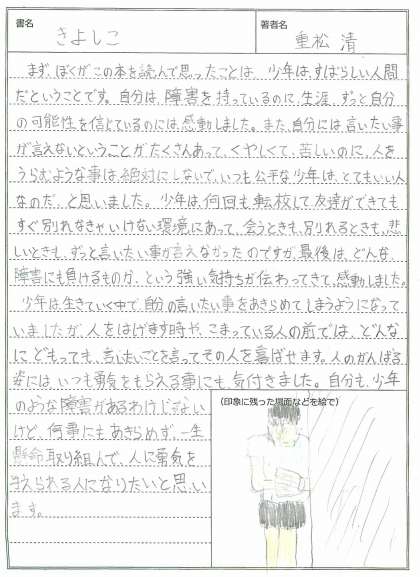 書名
きよしこ
著者名
重松 清
まず、ぼくがこの本を読んで思ったことは、少年は、すばらしい人間
だということです。自分は、障害を持っているのに、生涯、ずっと自分
の可能性を信じているのには感動しました。また、自分には言いたい事
が言えないということがたくさんあって、くやしくて、苦しいのに、人を
うらむような事は絶対にしないで、いつも公平な少年は、とてもいい人
なのだ、と思いました。少年は、何回も転校して友達ができても
すぐ別れなきゃいけない環境にあって、会うときも、別れるときも、悲
しいときも、ずっと言いたい事が言えなかったのですが、最後は、どんな
障害にも負けるものか、という強い気持ちが伝わってきて、感動しました。
少年は生きていく中で、自分の言いたい事をあきらめてしまうようになって
いましたが、人をはげます時や、こまっている人の前では、どんな
にどもっても、言いたいことを言ってその人を喜ばせます。人のがんばる
姿には、いつも勇気をもらえる事にも、気付きました。自分も、少年
のような障害があるわけじゃない
けど、何事にもあきらめず、一生
懸命取り組んで、人に勇気を
与えられる人になりたいと思い
ます。
(印象に残った場面などを絵で)